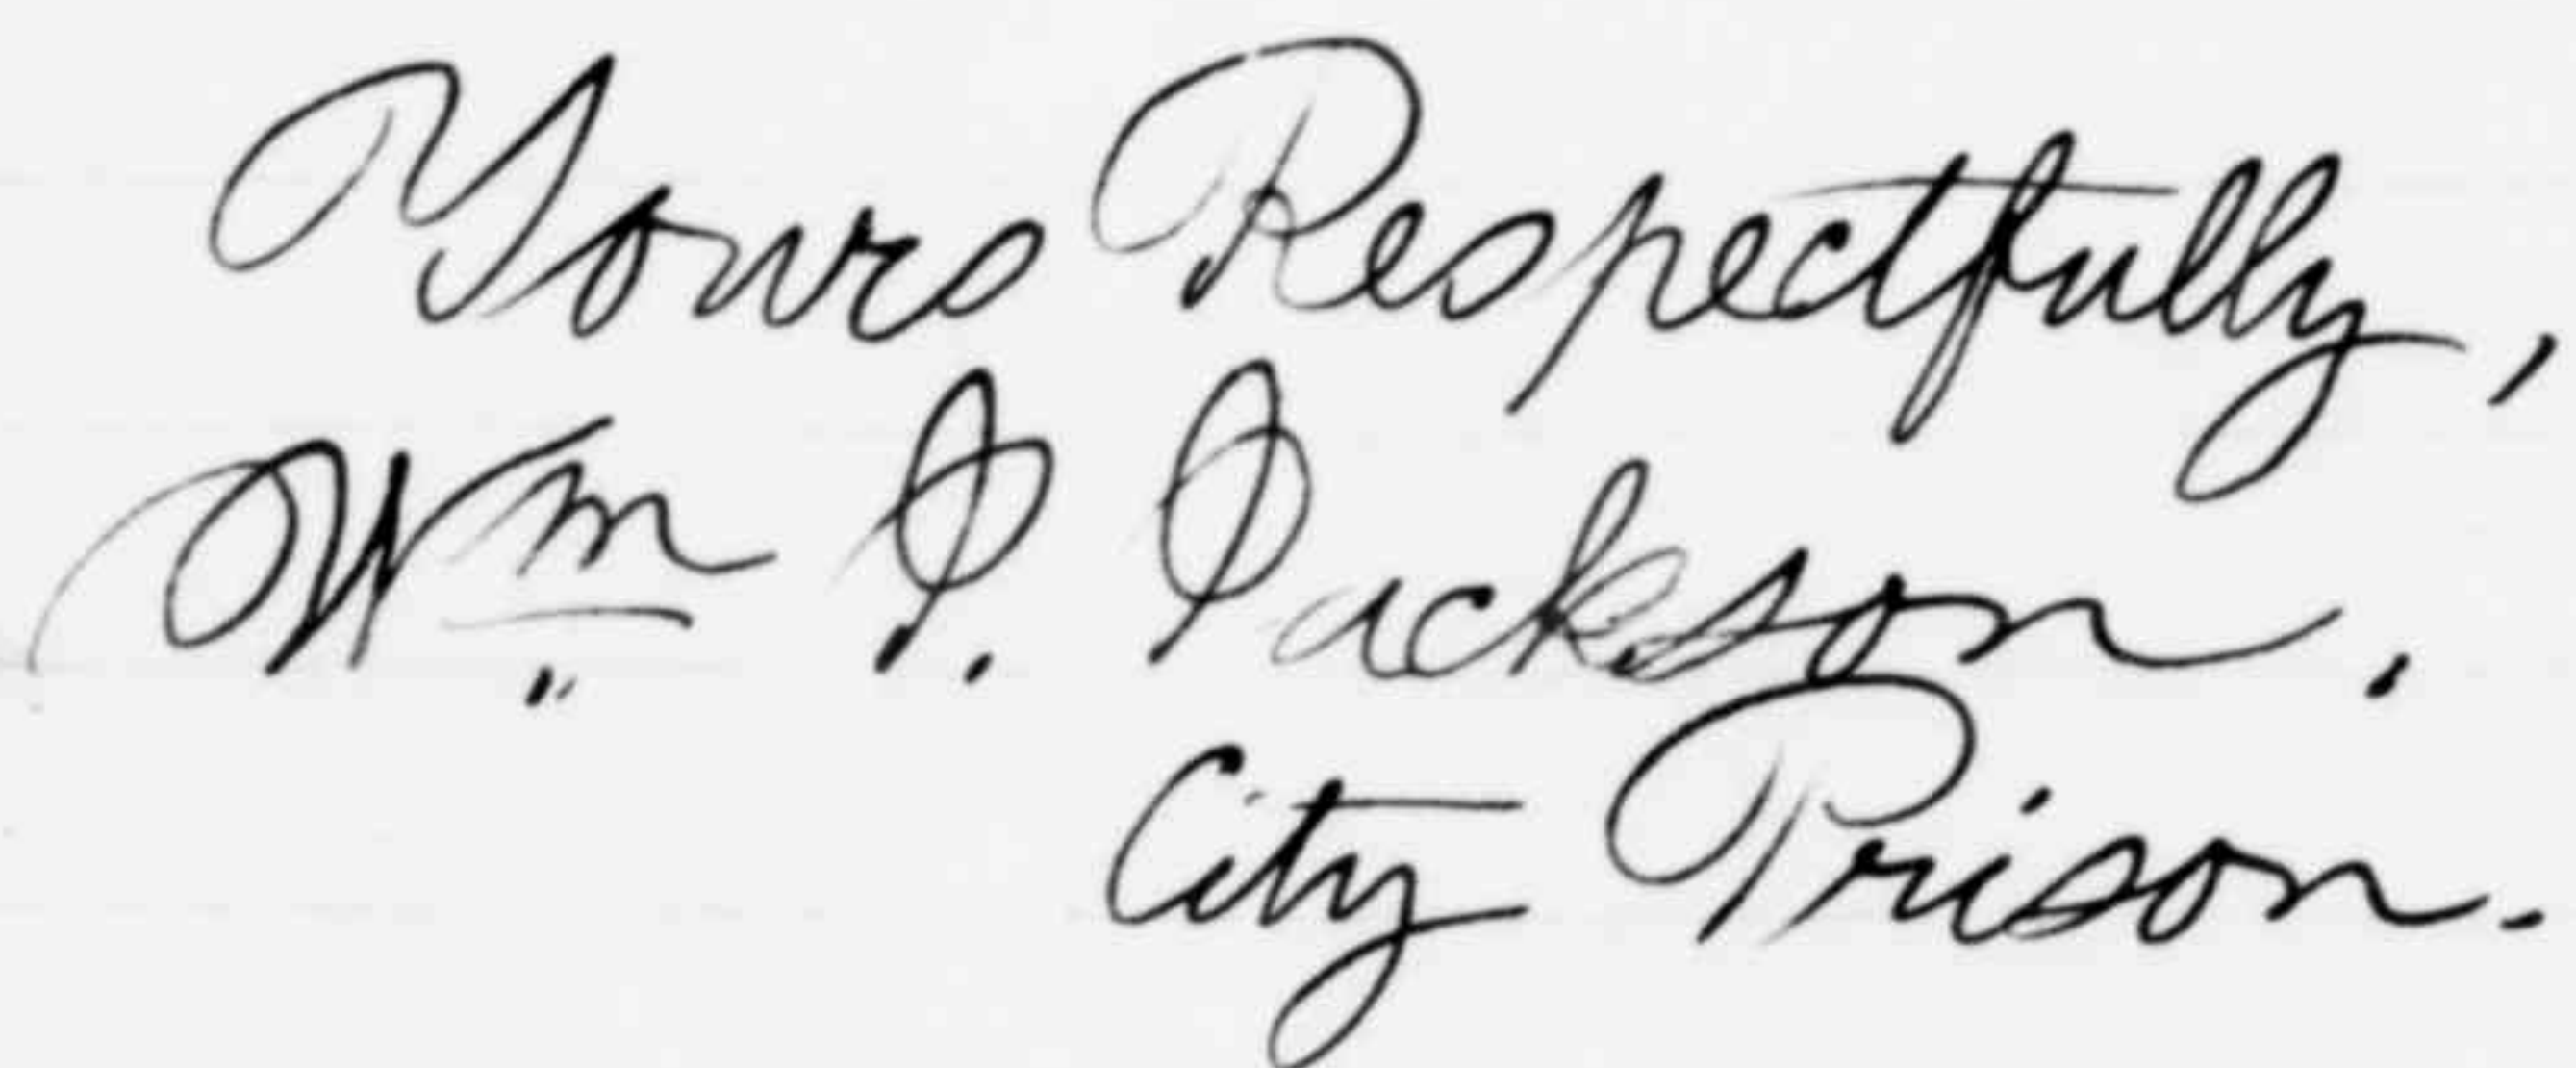 Yours Respectfully,
Wm J. Jackson.
City Prison.